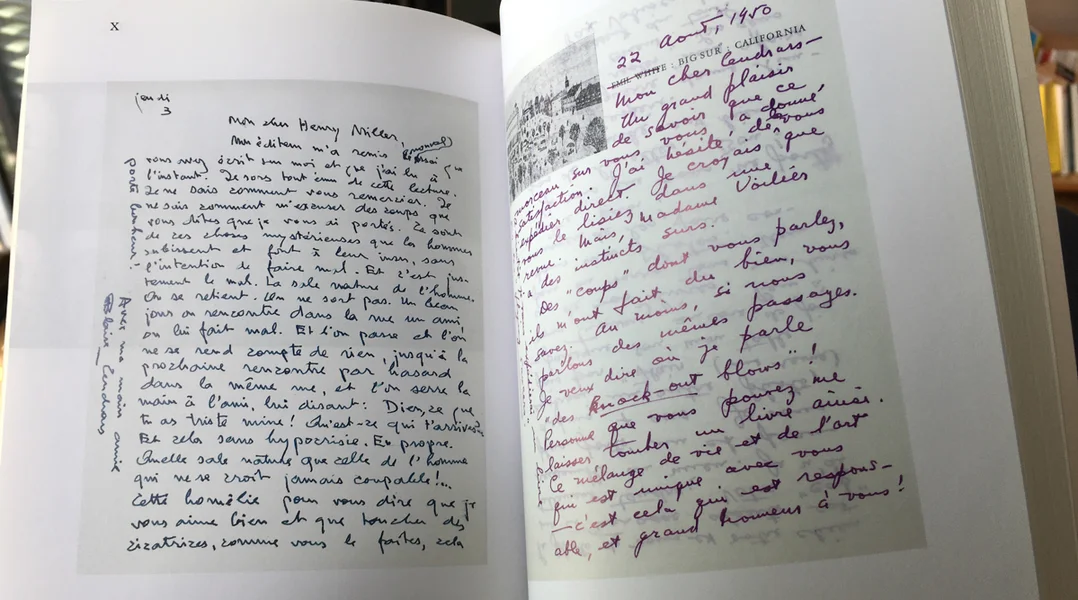 X
jeudi
3
Mon cher Henry Miller,
Mon éditeur m'a remis
vous avez écrit sur moi et que j'ai lu à
l'instant. Je sors tout ému de cette lecture.
Je ne sais comment vous remercier. Je
ne sais comment m'excuser des coups que
vous dites que je vous ai portés. Ce sont
de ces choses mystérieuses que les hommes
subissent et font à leur insu, sans
l'intention de faire mal. Et c'est jus-
tement le mal. La sale nature de l'homme.
On se retient. On ne sort pas. Un beau
jour on rencontre dans la rue un ami,
on lui fait mal. Et l'on passe et l'on
ne se rend compte de rien, jusqu'à la
prochaine rencontre par hasard
dans la même rue, et l'on serre la
main à l'ami, lui disant: Dieu, ce que
tu as triste mine! Qu'est-ce qui t'arrive?
Et cela sans hypocrisie. Et propre.
Quelle sale nature que celle de l'homme
qui ne se croit jamais coupable!...
Cette homélie pour vous dire que je
vous aime bien et que toucher des
cicatrices, comme vous le faites, cela
porte bonheur!
Avec ma main amie
Blaise Cendrars
22 Août, 1950
EMIL WHITE : BIG SUR : CALIFORNIA
Mon cher Cendrars—
Un grand plaisir
de savoir que ce
morceau sur vous vous a donné
satisfaction. J'ai hésité de vous
expédier direct. Je croyais que
vous le lisiez dans une
revue. Mais, Madame Voiliés
a des instincts surs.
Des "coups" dont vous parlez,
ils m'ont fait du bien, vous
savez. Au moins, si nous
parlons des mêmes passages.
Je veux dire où je parle
"des knock-out blows"!
Personne que vous pouvez me
laisser tomber un livre ainsi.
Ce mélange de vie et de l'art
qui est unique avec vous
—c'est cela qui est respons—
able, et grand honneur à vous!